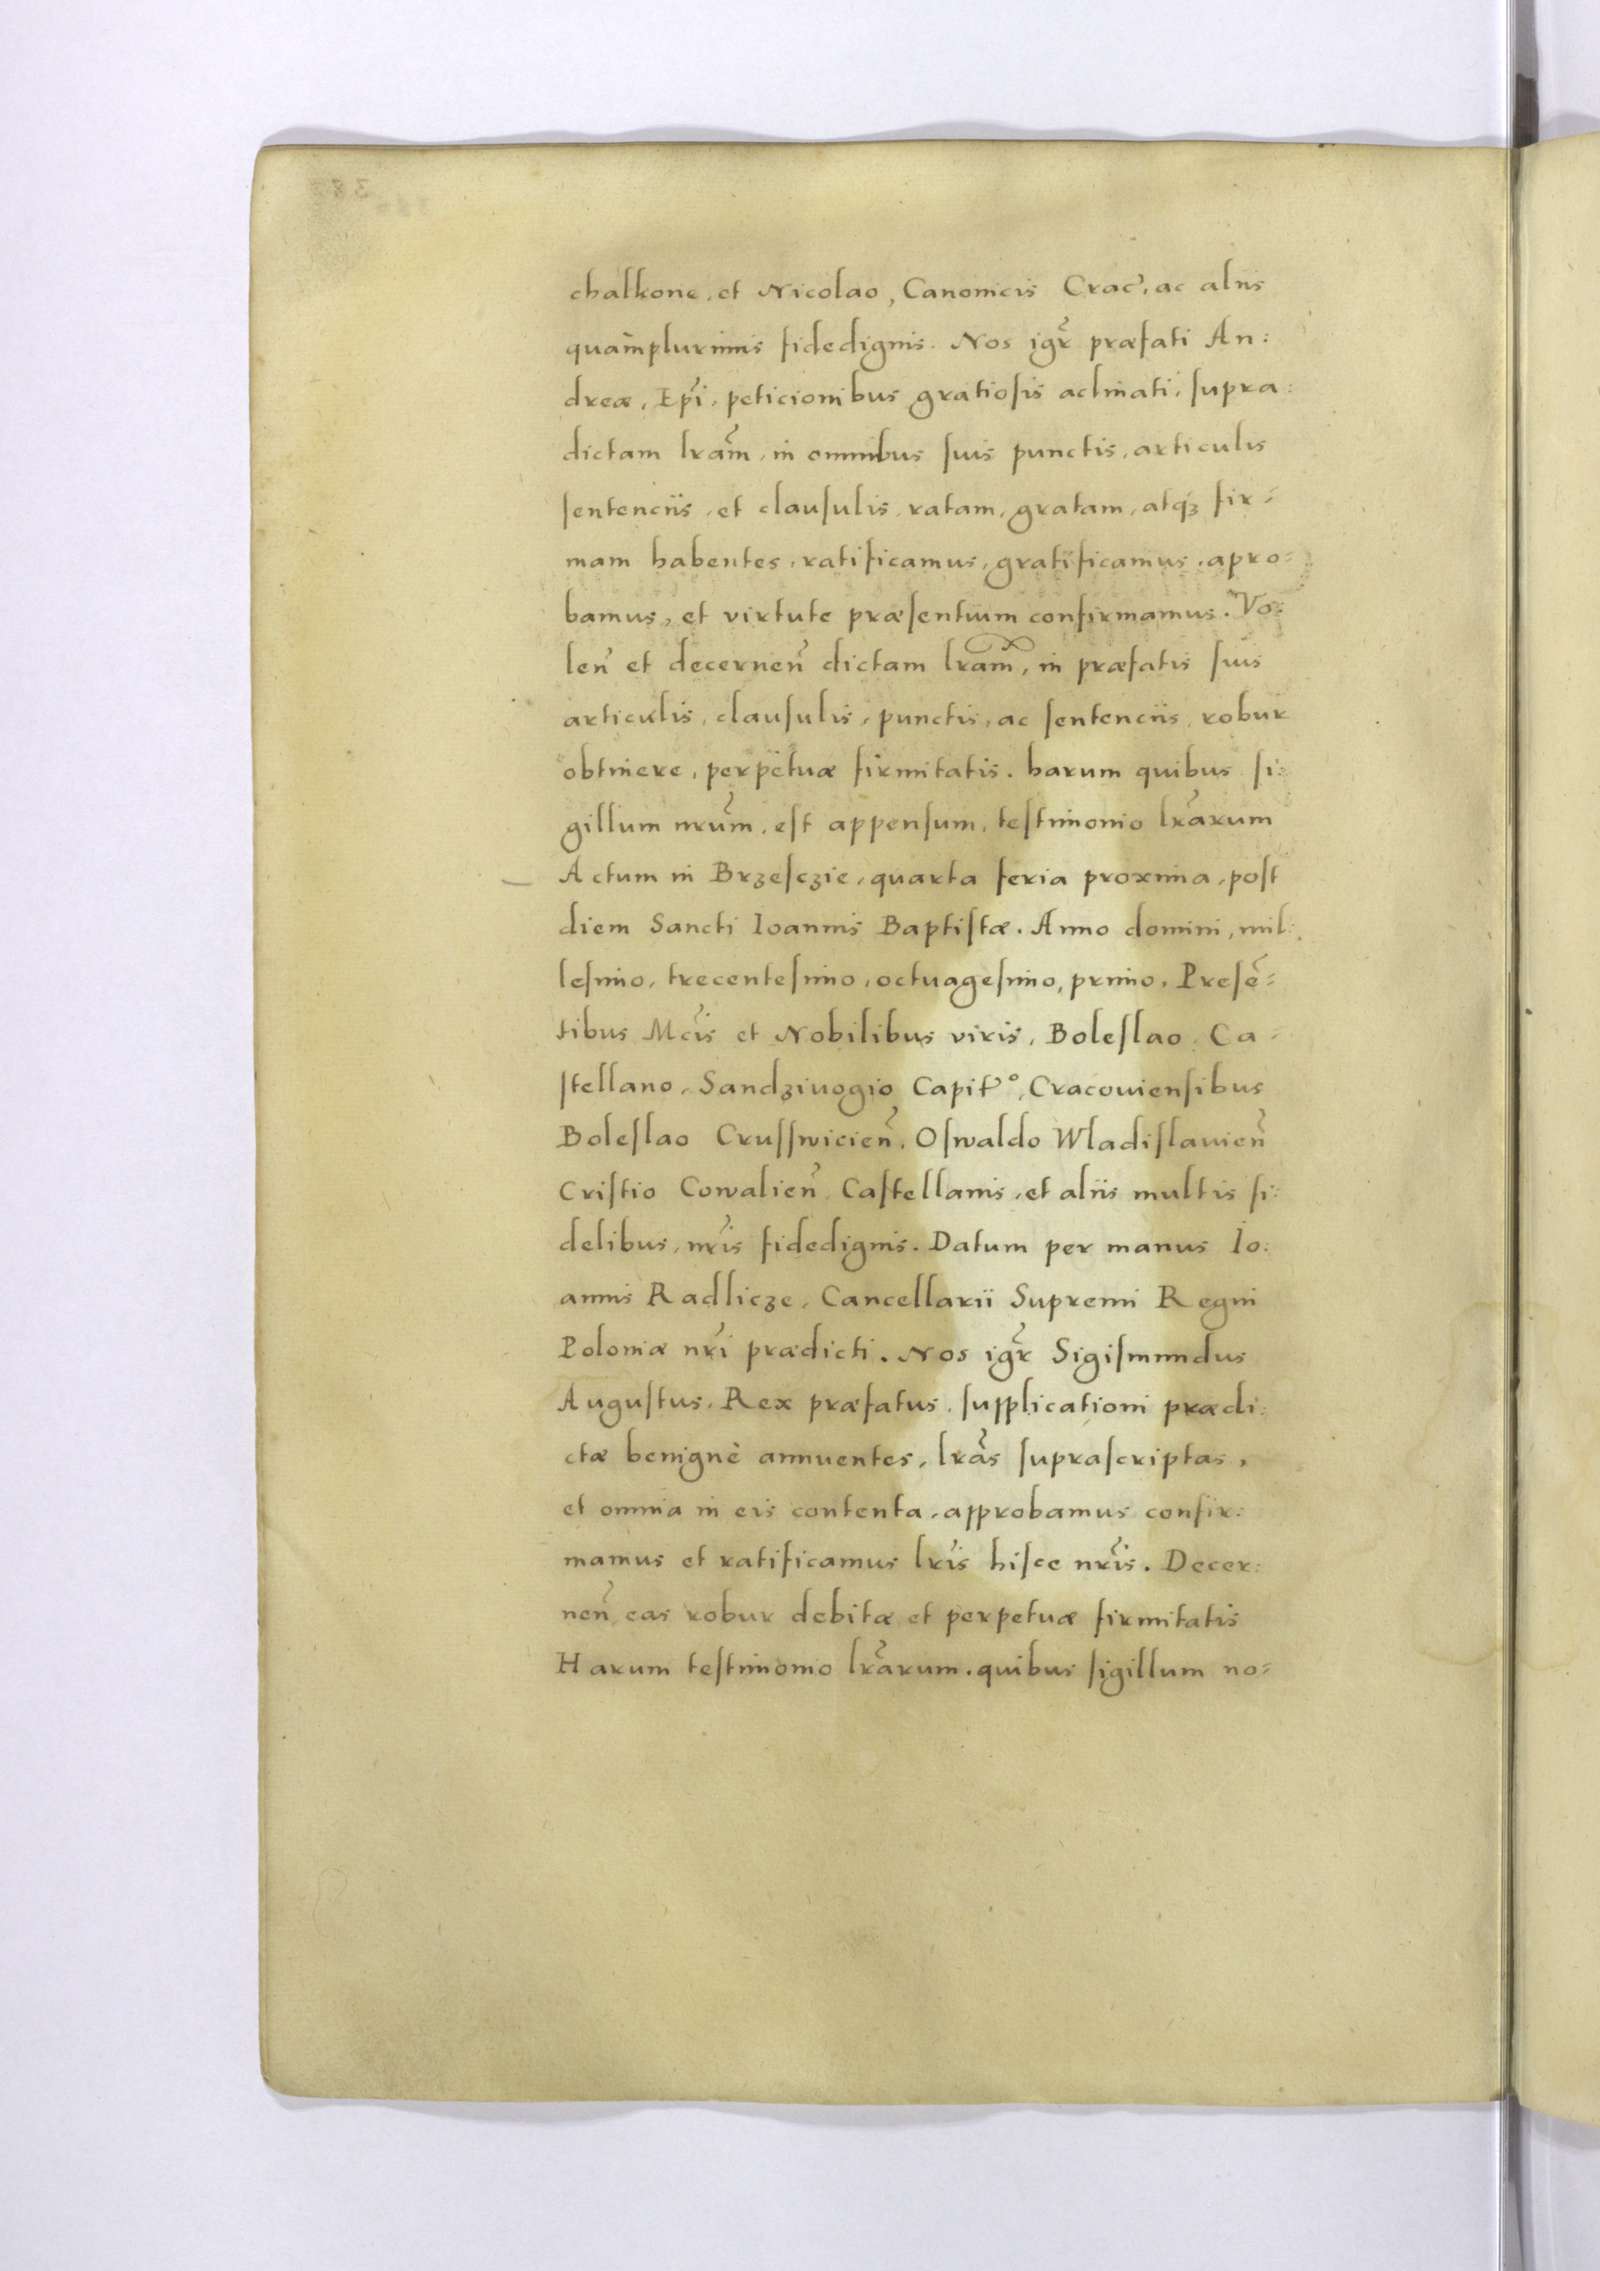 chalkone, et Nicolao, Canonicis Crac̃, ac aliis
quàmplurimis fidedignis. Nos igr̃ præfati An:
dreæ, Ep̃i, peticionibus gratiosis aclinati, supra:
dictam lr̃am, in omnibus suis punctis, articulis
sentenciis, et clausulis, ratam, gratam, atqȝ fir:
mam habentes, ratificamus, gratificamus, apro:
bamus, et virtute præsentium confirmamus. Vo:
len̄ et decernen̄ dictam lr̃am, in præfatis suis
articulis, clausulis, punctis, ac sentenciis, robur
obtinere, perpetuæ firmitatis. harum quibus si:
gillum nr̃um, est appensum, testimonio lr̃arum
Actum in Brzesczie, quarta feria proxima, post
diem Sancti Ioannis Baptistæ. Anno domini, mil:
lesimo, trecentesimo, octuagesimo, primo, Presẽ:
tibus Mc̃is et Nobilibus viris, Boleslao, Ca:
stellano, Sandziuogio Capit°, Cracouiensibus
Boleslao Crusswicien̄, Oswaldo Wladislauien̄
Cristio Cowalien̄, Castellanis, et aliis multis fi:
delibus, nr̃is fidedignis. Datum per manus Io:
annis Radlicze, Cancellarii Supremi Regni
Poloniæ nr̃i prædicti. Nos igr̃ Sigismundus
Augustus, Rex præfatus, supplicationi prædi:
ctæ benignè annuentes, lr̃as suprascriptas,
et omnia in eis contenta, approbamus confir:
mamus et ratificamus lr̃is hisce nr̃is. Decer:
nen̄ eas robur debitæ et perpetuæ firmitatis
Harum testimonio lr̃arum. quibus sigillum no: